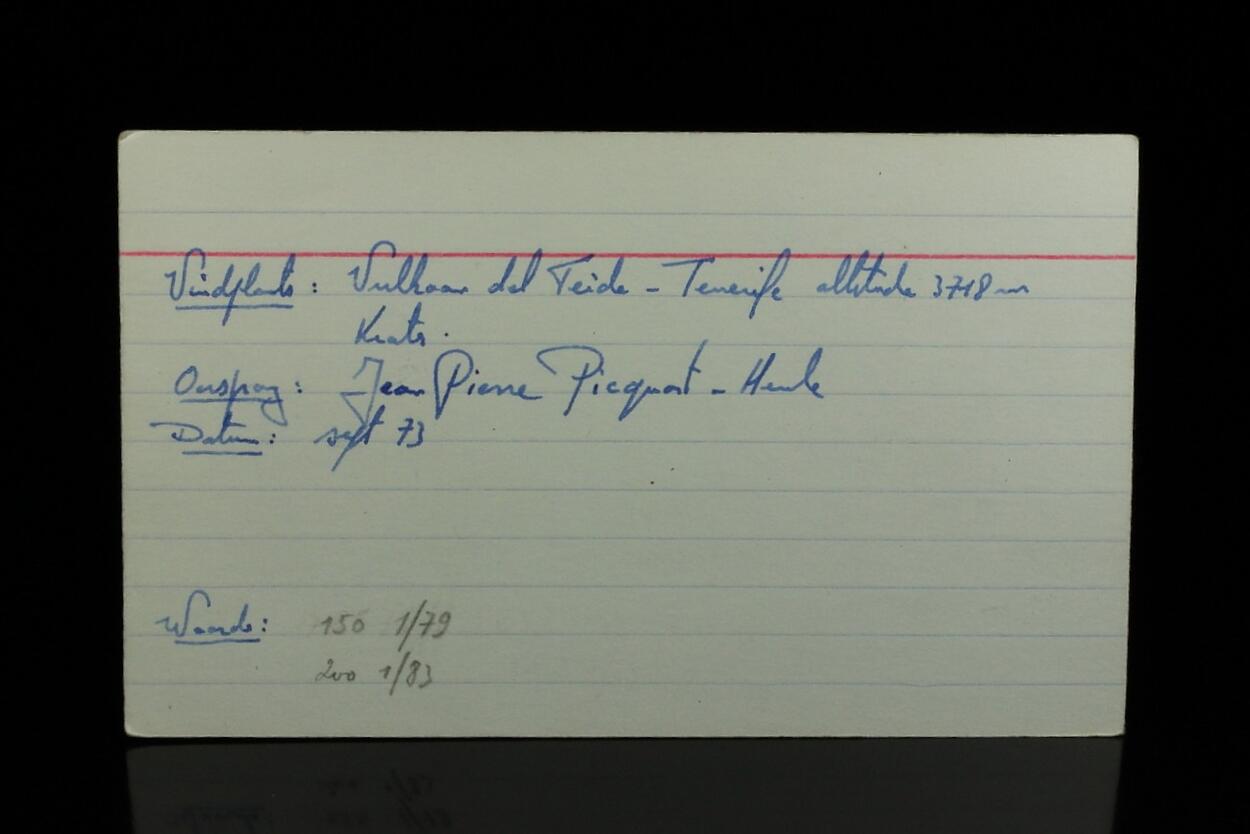 Vindplaats: Vulkaan del Teide - Tenerife altitude 3718 m
Krater.
Oorsprong: Jean Pierre Picquot -
Datum: sept 73
Waarde: 150 1/79
200 1/83